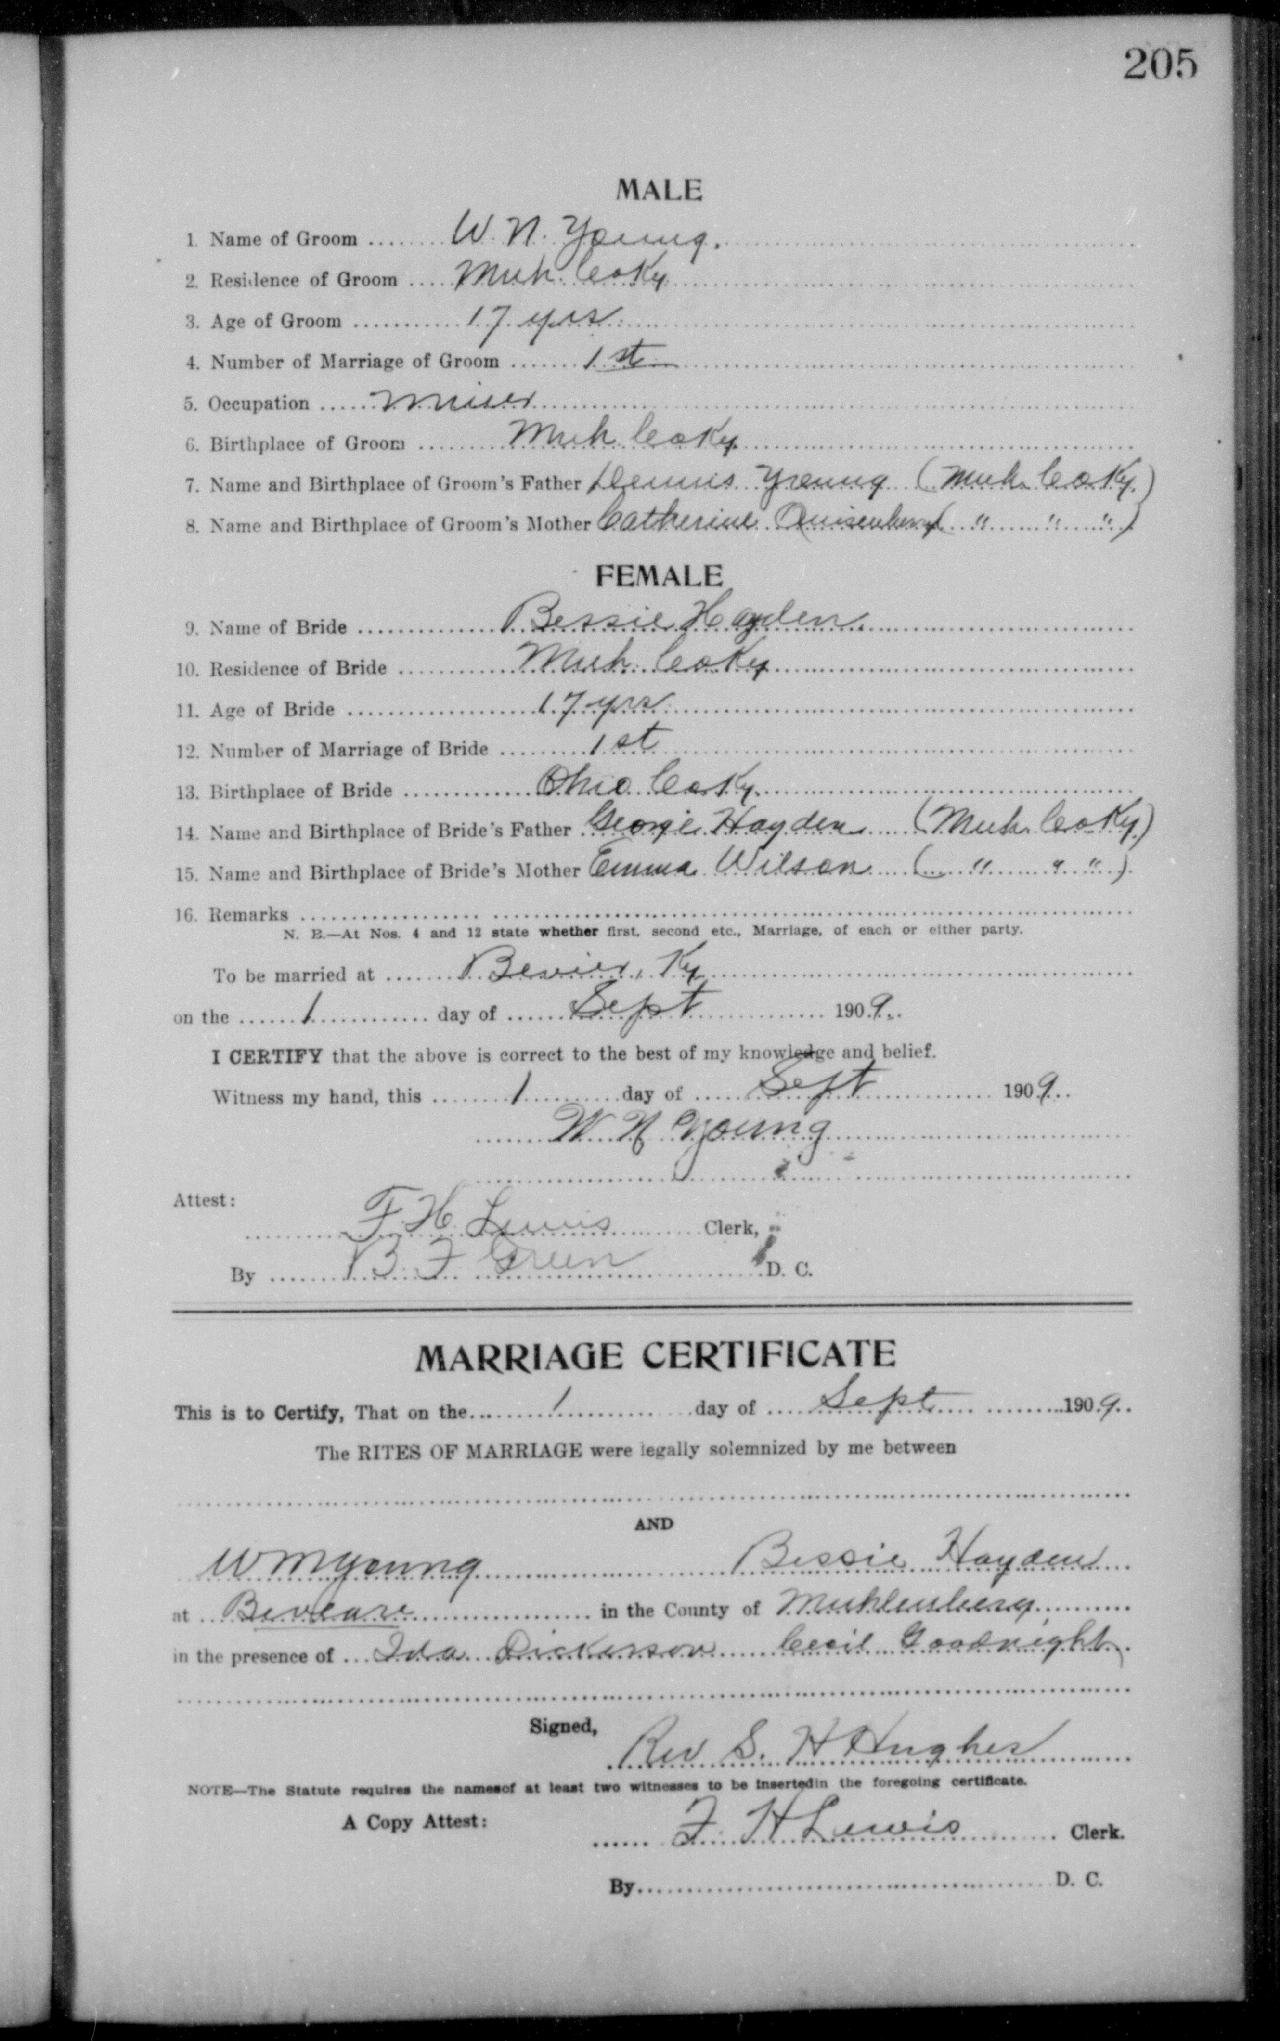 205
MALE
1. Name of Groom W. N. Young.
2. Residence of Groom Muh. Co Ky
3. Age of Groom 17 yrs
4. Number of Marriage of Groom 1st
5. Occupation Miner
6. Birthplace of Groom Muh. Co Ky
7. Name and Birthplace of Groom's Father Dennis Young (Muh. Co Ky.)
8. Name and Birthplace of Groom's Mother Catherine Quisenberry ( " " " )
FEMALE
9. Name of Bride Bessie Hayden.
10. Residence of Bride Muh. Co Ky
11. Age of Bride 17 yrs
12. Number of Marriage of Bride 1st
13. Birthplace of Bride Ohio Co Ky.
14. Name and Birthplace of Bride's Father George Hayden (Muh. Co Ky.)
15. Name and Birthplace of Bride's Mother Emma Wilson ( " " " )
16. Remarks
N. B.—At Nos. 4 and 12 state whether first, second etc., Marriage, of each or either party.
To be married at Bevier, Ky
on the 1 day of Sept 1909.
I CERTIFY that the above is correct to the best of my knowledge and belief.
Witness my hand, this 1 day of Sept 1909.
W N Young
Attest:
F. H. Lewis Clerk,
By B. F. Green D. C.
MARRIAGE CERTIFICATE
This is to Certify, That on the 1 day of Sept 1909.
The RITES OF MARRIAGE were legally solemnized by me between
AND
W M Young Bessie Hayden
at Beveare in the County of Muhlenberg
in the presence of Ida Dickerson Cecil Goodnight
Signed,
Rev S. H Hughes
NOTE—The Statute requires the namesof at least two witnesses to be insertedin the foregoing certificate.
A Copy Attest:
F. H Lewis Clerk.
By D. C.